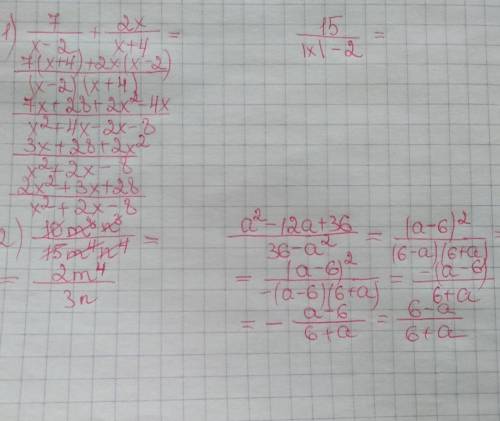 1) 7/(x-2) + 2x/(x+4) =
(7(x+4)+2x(x-2))/((x-2)(x+4))
(7x+28+2x²-4x)/(x²+4x-2x-8)
(3x+28+2x²)/(x²+2x-8)
(2x²+3x+28)/(x²+2x-8)
15/(|x|-2) =
2) =
= 2m⁴/3n
(a²-12a+36)/(36-a²) = (a-6)²/((6-a)(6+a)) =
= (a-6)²/(-(a-6)(6+a)) = -(a-6)/(6+a)
= - (a-6)/(6+a) = (6-a)/(6+a)